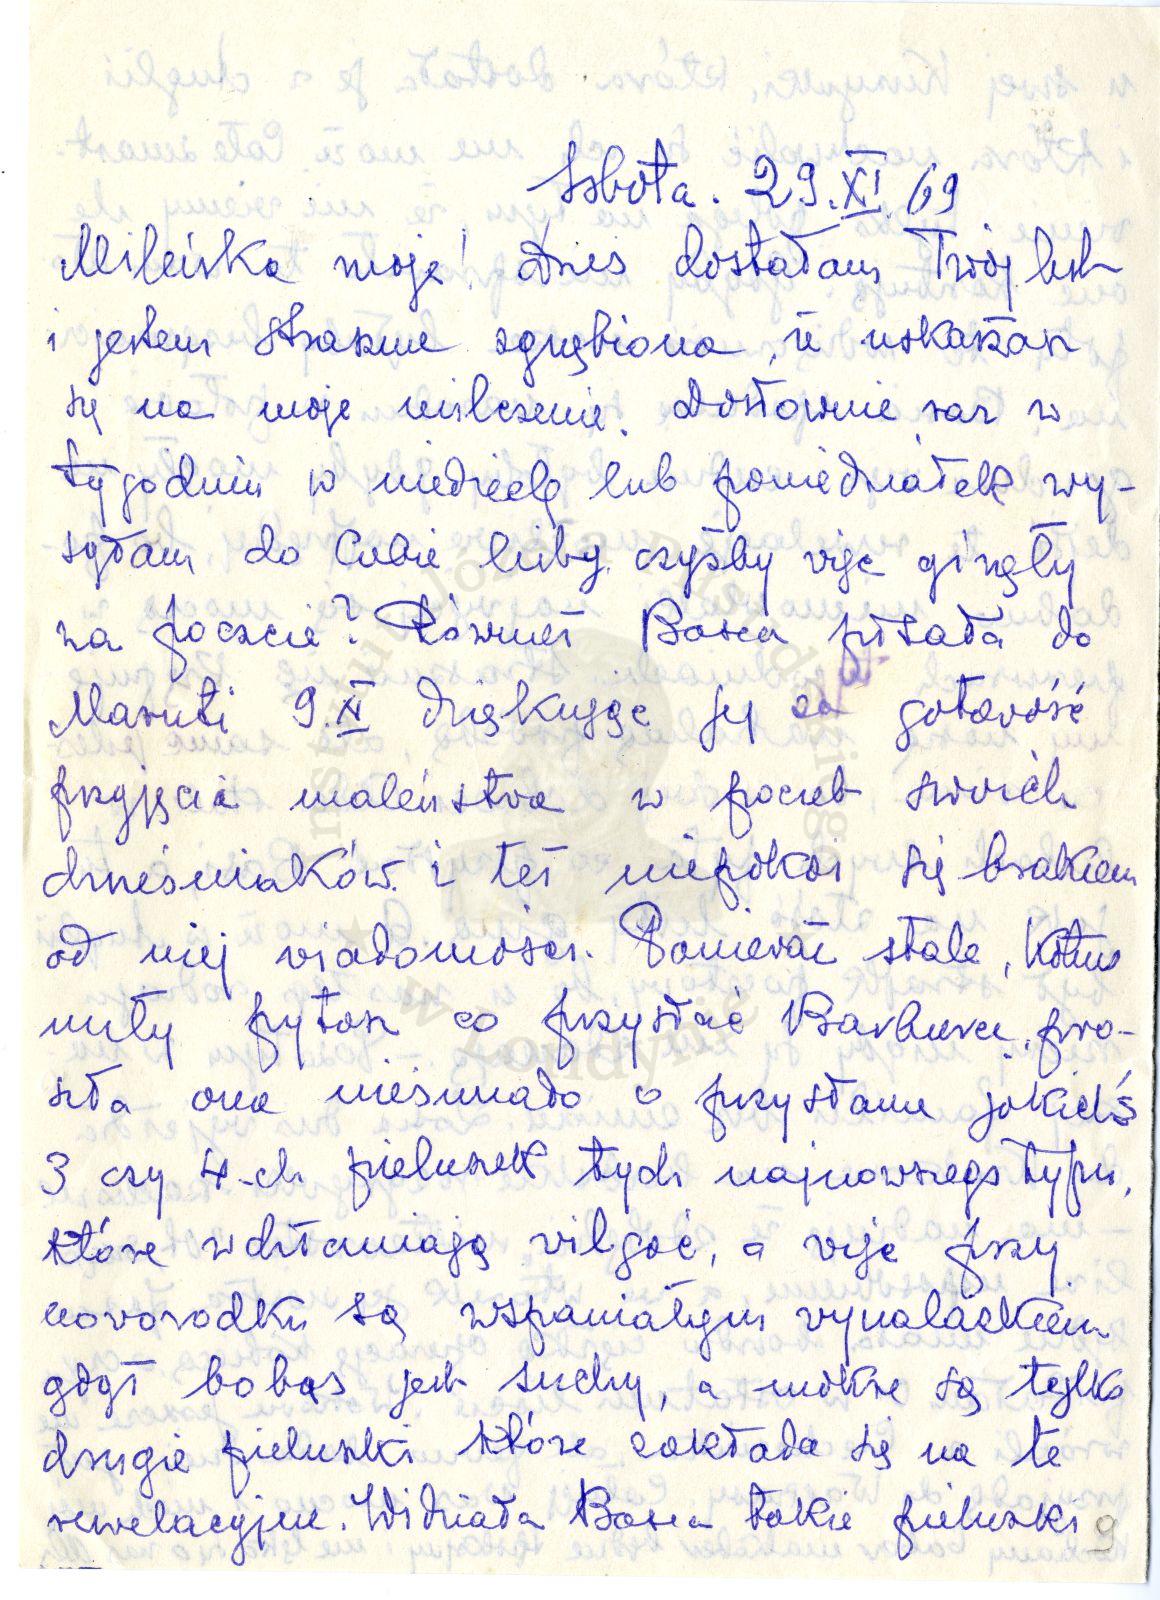 Sobota. 29.XI.69
Mileńka moja! Dziś dostałam Twój list
i jestem strasznie zgnębiona, że uskarżasz
się na moje milczenie. Dosłownie raz w
tygodniu w niedzielę lub poniedziałek wy-
syłam do Ciebie listy, czyżby więc ginęły
na poczcie? Również Basia pisała do
Maruti 9.XI dziękując jej za gotowość
przyjęcia maleństwa w poczet swoich
chrześniaków i też niepokoi się brakiem
od niej wiadomości. Ponieważ stale, Kotuś
miły pytasz co przysłać Barbarze, pro-
siła ona nieśmiało o przysłanie jakichś
3 czy 4-ch pieluszek tych najnowszego typu,
które wchłaniają wilgoć, a więc przy
noworodku są wspaniałym wynalazkiem
gdyż bobas jest suchy, a mokre są tylko
drugie pieluszki które zakłada się na te
rewelacyjne. Widziała Basia takie pieluszki
9
Instytut Józefa Piłsudskiego
w Londynie